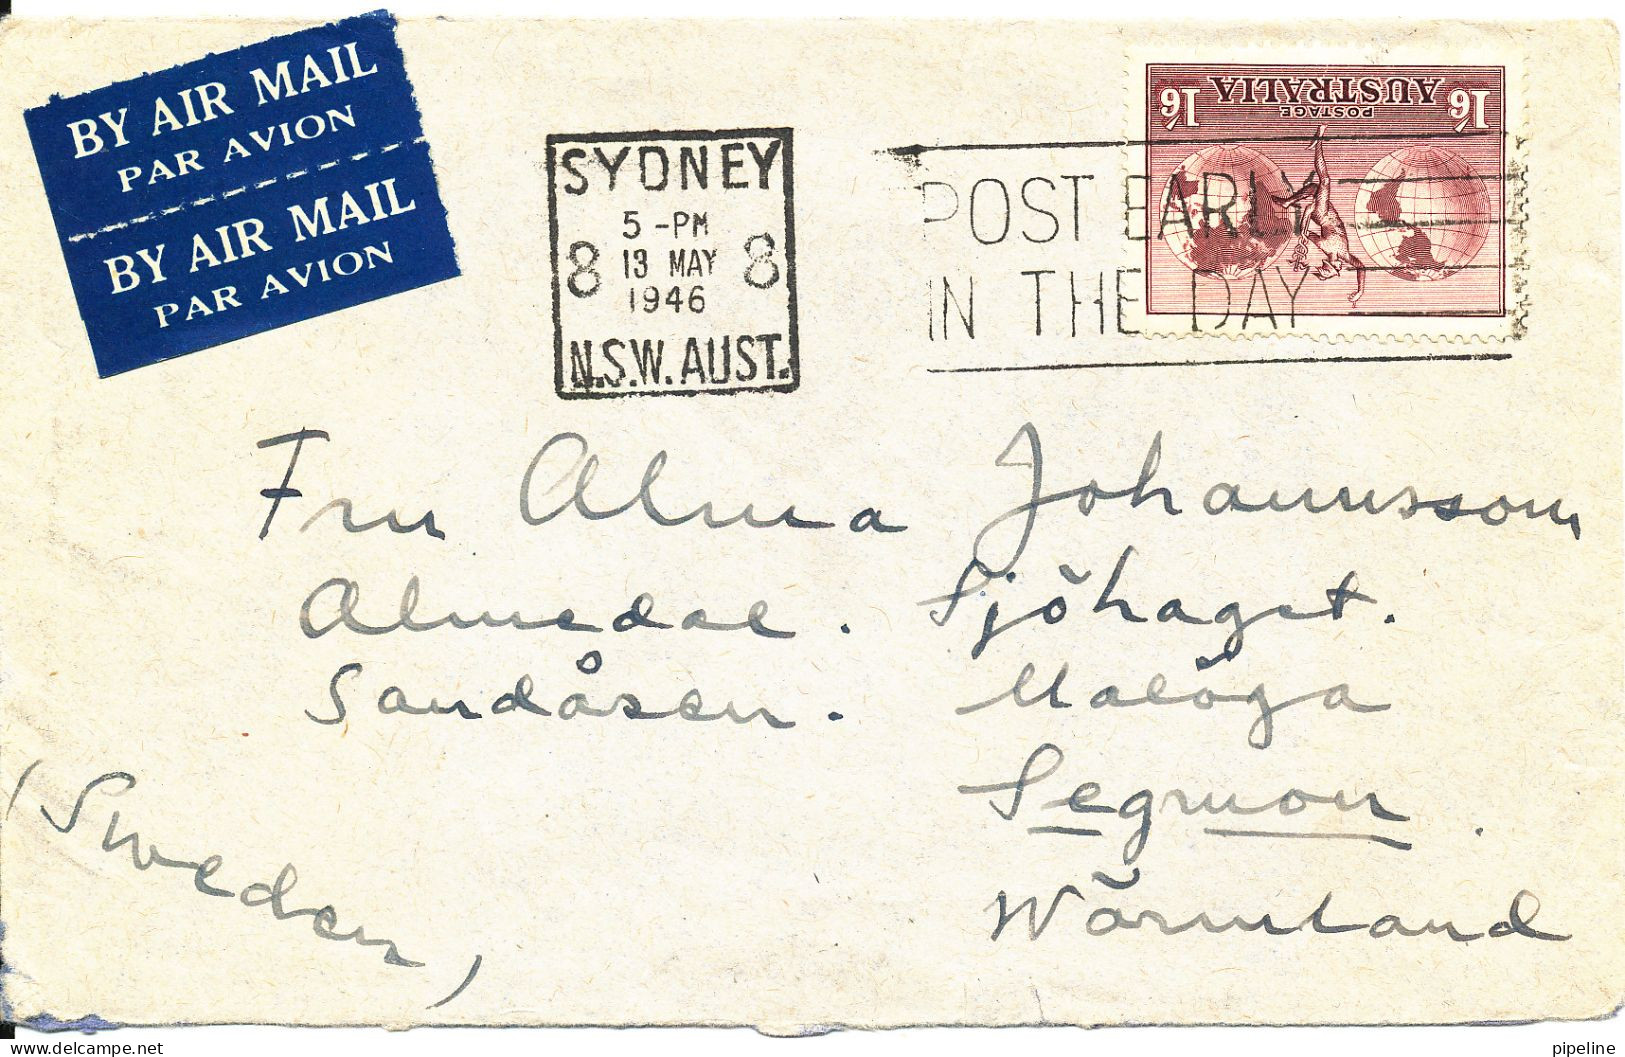 BY AIR MAIL
PAR AVION
BY AIR MAIL
PAR AVION
SYDNEY
5 -PM
8 13 MAY 8
1946
N.S.W. AUST.
POST EARLY
IN THE DAY
1/6 1/6
POSTAGE
AUSTRALIA
Fru Alma Johannsson
Almedal. Sjöhaget.
Sandåsen. Malöga
Segmon.
Wärmland
(Sweden)
pipeline